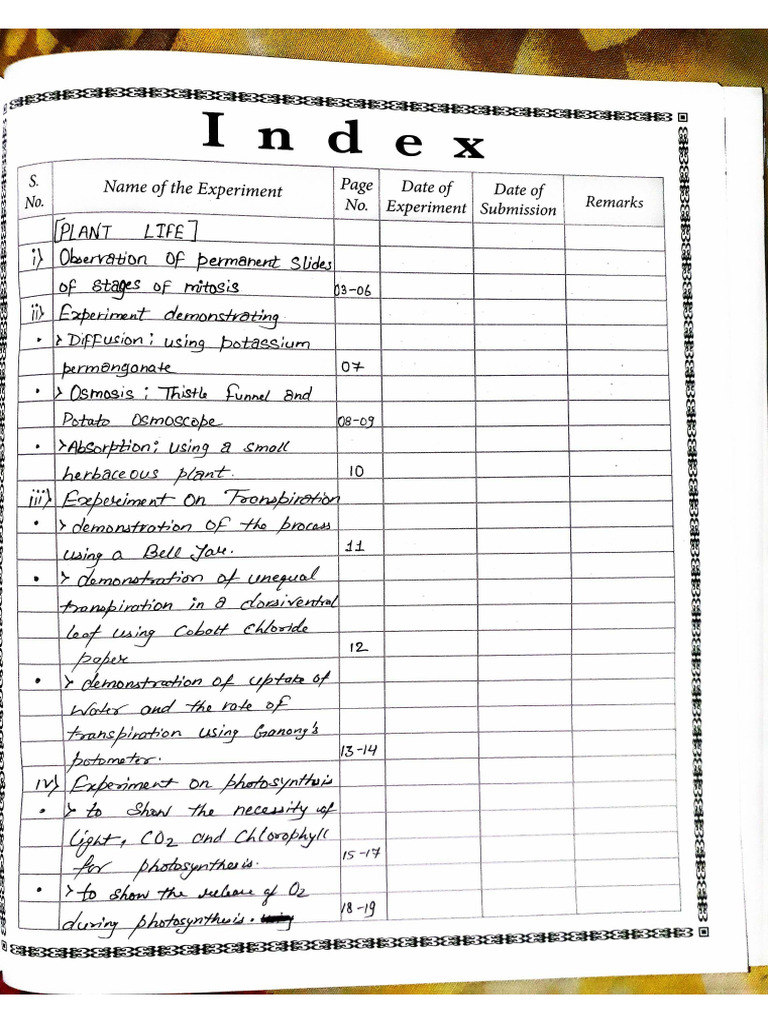 Index
S. No. Name of the Experiment Page No. Date of Experiment Date of Submission Remarks
[PLANT LIFE]
i) Observation of permanent slides
of stages of mitosis 03-06
ii) Experiment demonstrating
• > Diffusion; using potassium
permanganate 07
• > Osmosis; Thistle funnel and
Potato Osmoscope 08-09
• > Absorption; using a small
herbaceous plant. 10
iii) Experiment on Transpiration
• > demonstration of the process
using a Bell Jar. 11
• > demonstration of unequal
transpiration in a dorsiventral
leaf using Cobalt Chloride
paper 12
• > demonstration of uptake of
Water and the rate of
transpiration using Ganong's
potometer. 13-14
iv) Experiment on photosynthesis
• > to show the necessity of
light, CO2 and Chlorophyll
for photosynthesis. 15-17
• > to show the release of O2
during photosynthesis. 18-19